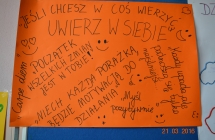 JEŚLI CHCESZ W COŚ WIERZYĆ
UWIERZ W SIEBIE
Carpe diem
POCZĄTEK
WSZELKICH ZMIAN
JEST W TOBIE!
NIECH KAŻDA PORAŻKA
BĘDZIE MOTYWACJĄ DO
DZIAŁANIA
Myśl
pozytywnie
Każdy upada
21 03 2016